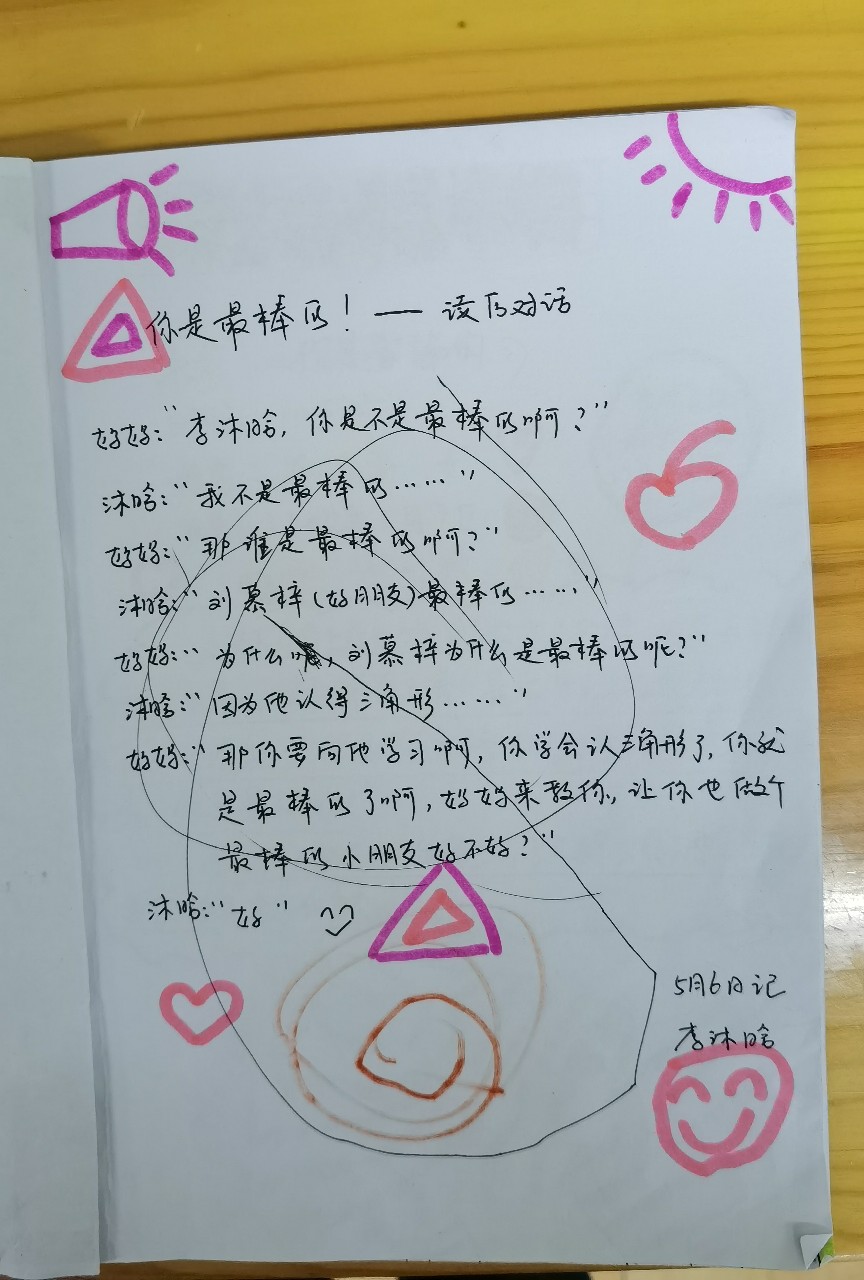 你是最棒的！— 读后对话
妈妈：“李沐晗，你是不是最棒的啊？”
沐晗：“我不是最棒的……”
妈妈：“那谁是最棒的啊？”
沐晗：“刘慕梓（好朋友）最棒的……”
妈妈：“为什么呢，刘慕梓为什么是最棒的呢？”
沐晗：“因为他认得三角形……”
妈妈：“那你要向他学习啊，你学会认三角形了，你就
是最棒的了啊，妈妈来教你，让你也做个
最棒的小朋友好不好？”
沐晗：“好”
5月6日记
李沐晗